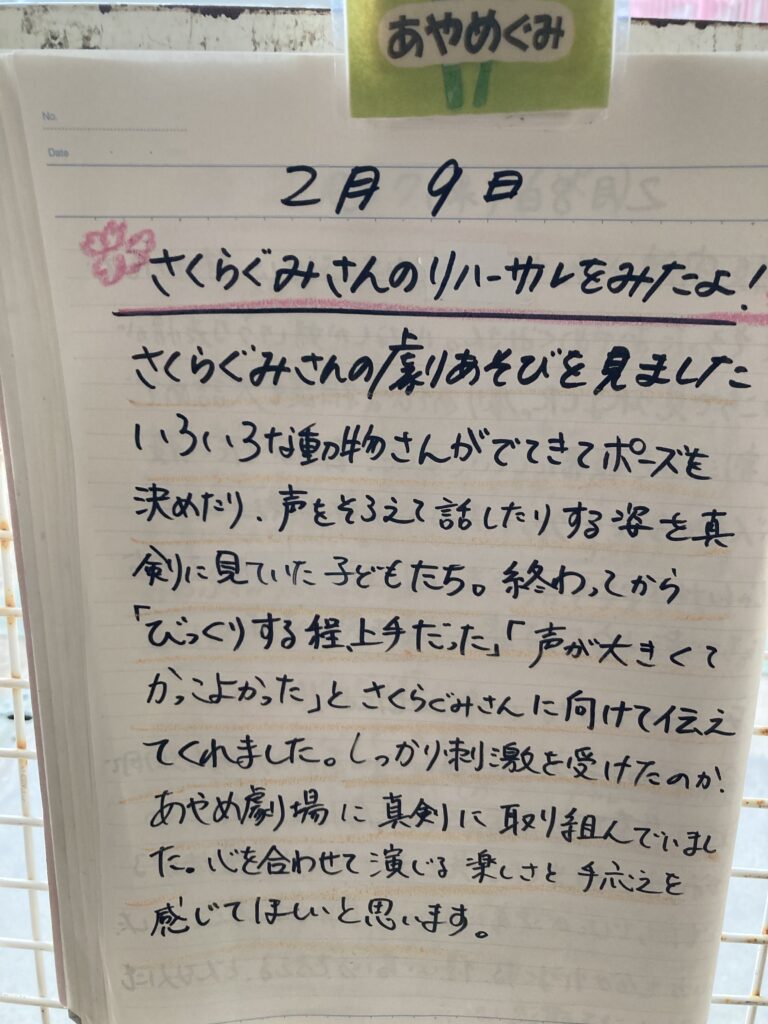 あやめぐみ
No.
Date
2月9日
さくらぐみさんのリハーサルをみたよ!
さくらぐみさんの劇あそびを見ました
いろいろな動物さんがでてきてポーズを
決めたり、声をそろえて話したりする姿を真
剣に見ていた子どもたち。終わってから
「びっくりする程、上手だった」「声が大きくて
かっこよかった」とさくらぐみさんに向けて伝え
てくれました。しっかり刺激を受けたのか、
あやめ劇場に真剣に取り組んでいまし
た。心を合わせて演じる楽しさと手応えを
感じてほしいと思います。